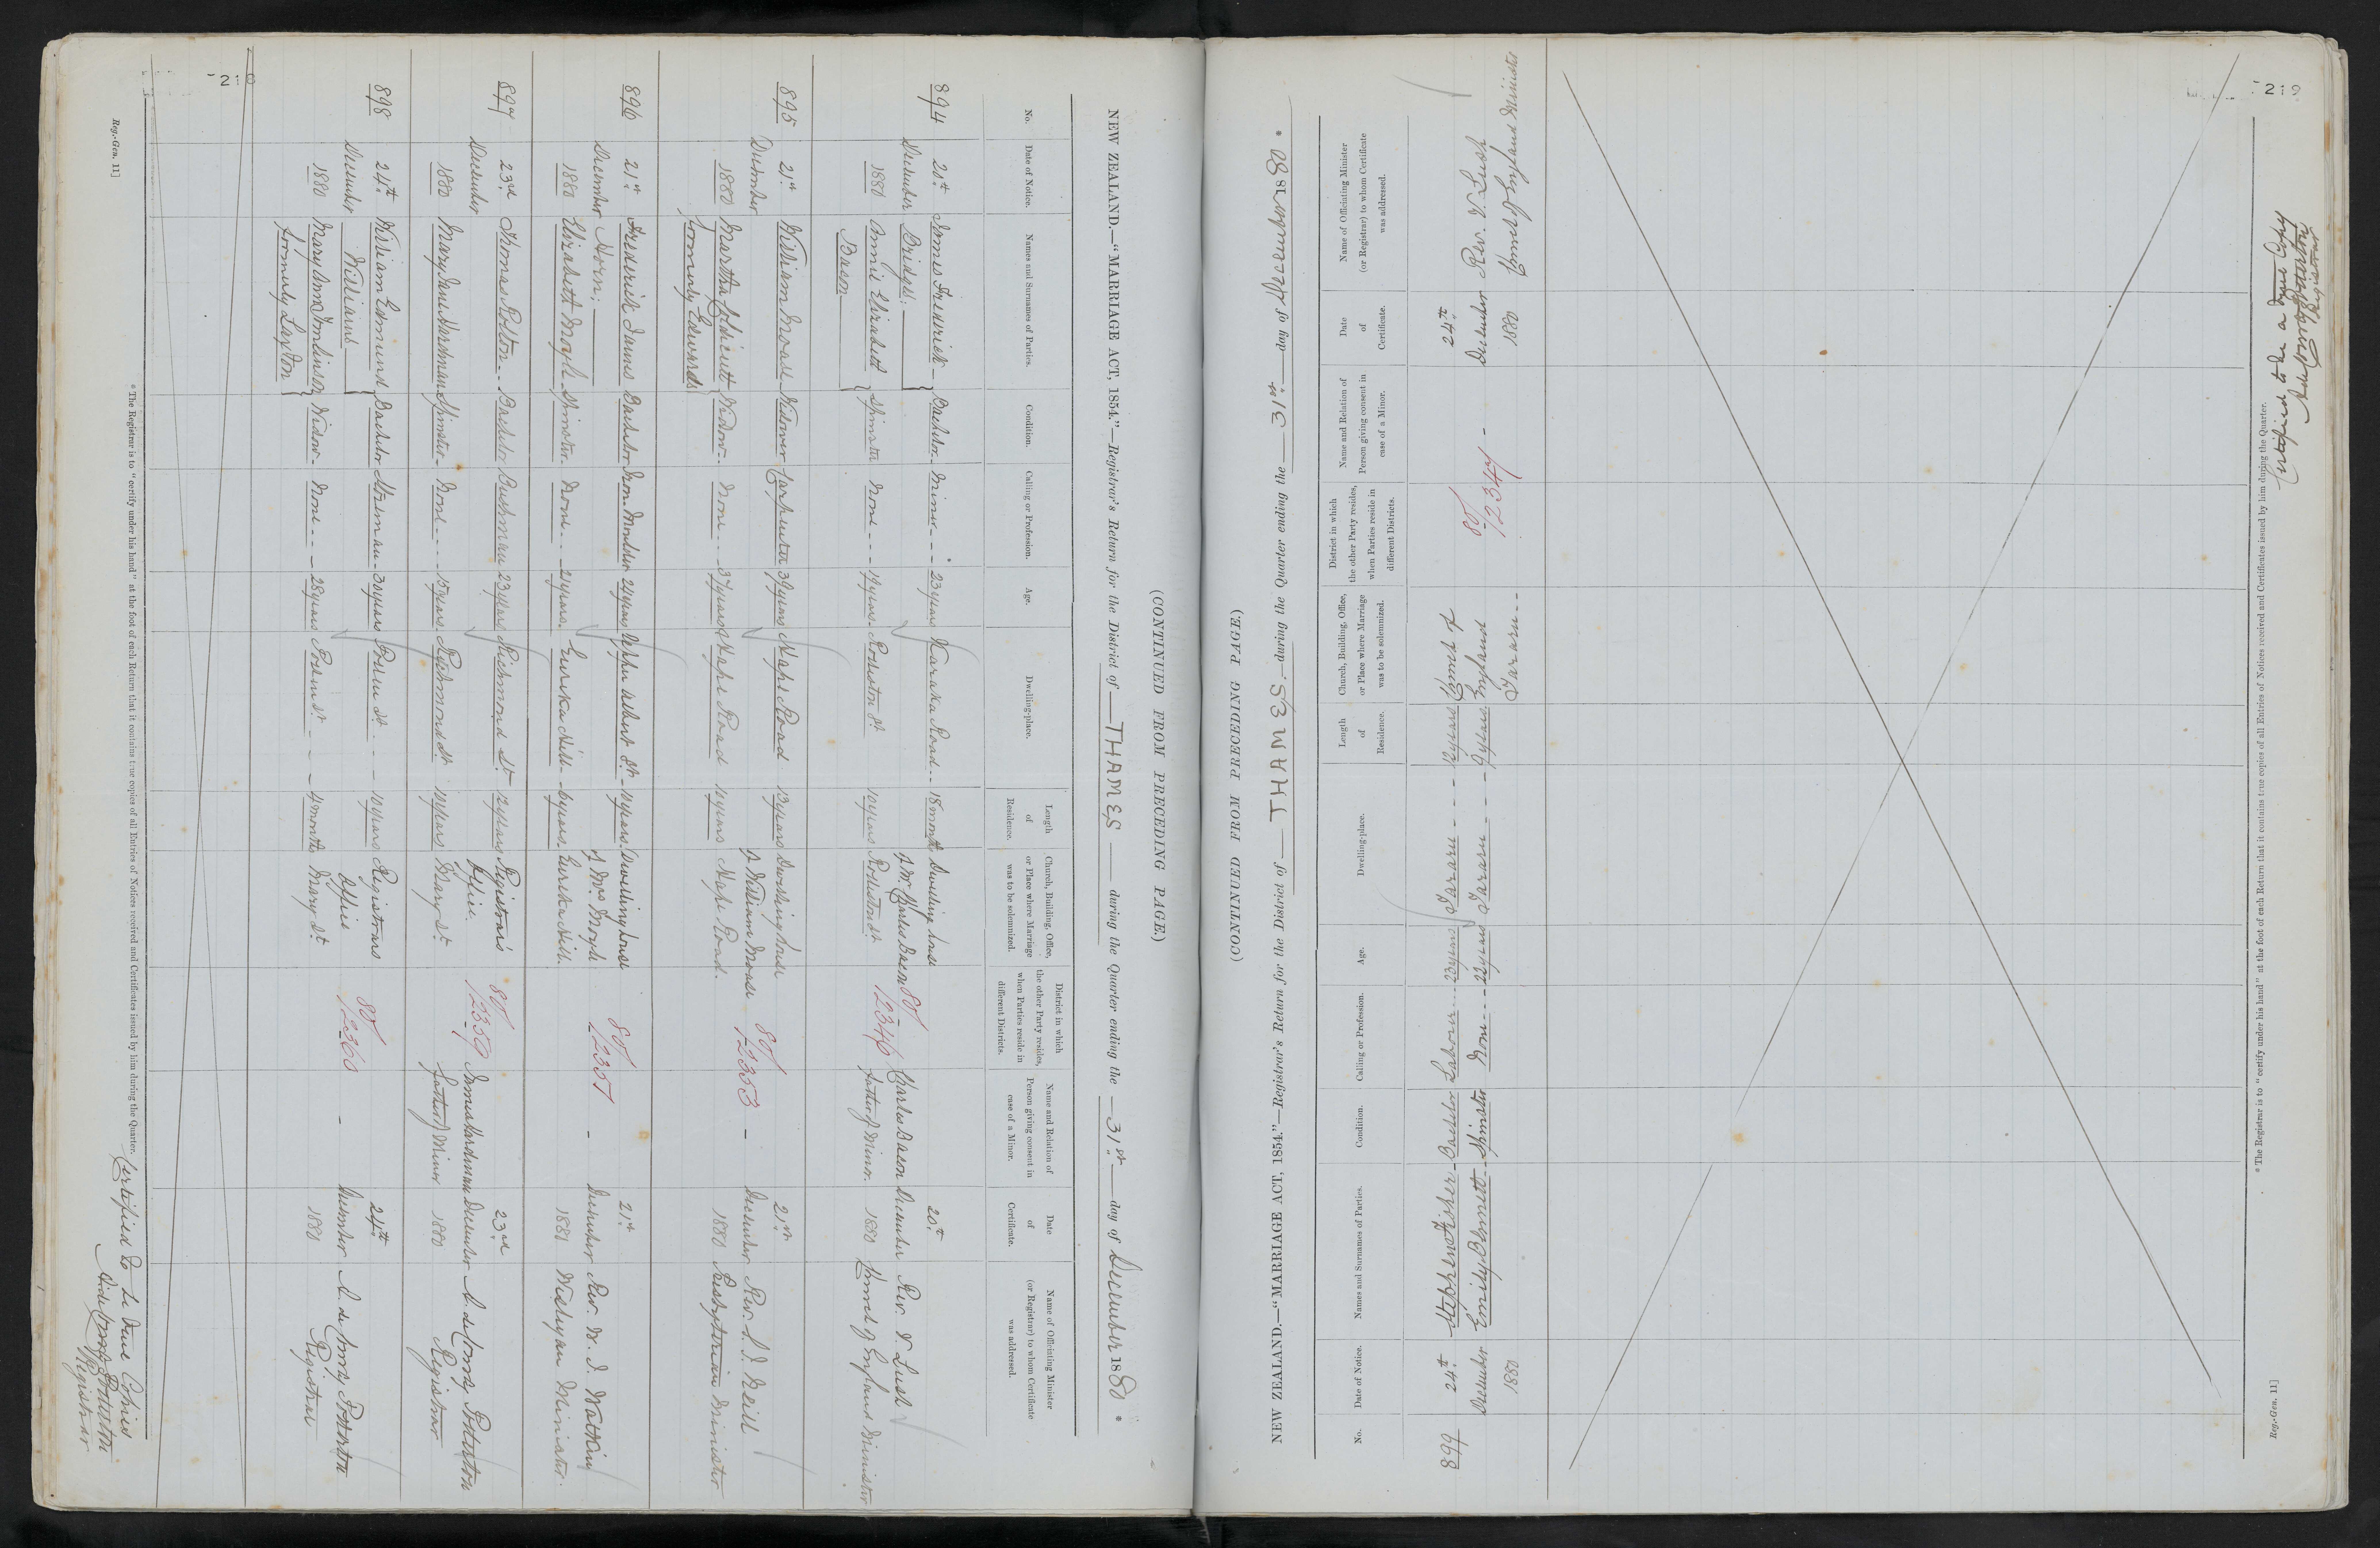 (CONTINUED FROM PRECEDING PAGE.)
NEW ZEALAND.—"MARRIAGE ACT, 1854."—Registrar's Return for the District of THAMES during the Quarter ending the 31st day of December 1880 *
No. Date of Notice. Names and Surnames of Parties. Condition. Calling or Profession. Age. Dwelling-place. Length of Residence. Church, Building, Office, or Place where Marriage was to be solemnized. District in which the other Party resides, when Parties reside in different Districts. Name and Relation of Person giving consent in case of a Minor. Date of Certificate. Name of Officiating Minister (or Registrar) to whom Certificate was addressed.
894 20th James Frederick Bachelor Miner 23 years Karaka Road 18 months Dwelling house 20th
December Bridges of Mr Charles Bacon 80/ Charles Bacon December Rev. V Lush
1880 Annie Elizabeth Spinster None 19 years Rolleston St 10 years Rolleston St 12346 father of Minor 1880 Church of England Minister
Bacon
895 21st William Moase Widower Carpenter 39 years Hape Road 13 years Dwelling house 80/ 21st
December of William Moase 12353 - December Rev. S. J. Neill
1880 Martha Widow None 37 years Hape Road 10 years Hape Road. 1880 Presbyterian Minister
formerly Edwards
896 21st Frederick James Bachelor Iron Moulder 24 years Upper Albert St 10 years Dwelling house 80/ 21st
December Horn of Mrs Moyle 12351 - December Rev. W. J. Watkin
1880 Elizabeth Moyle Spinster None 21 years Eureka Hill 6 years Eureka Hill. 1880 Wesleyan Minister
897 23rd Thomas Rolton Bachelor Bushman 23 years Richmond St 12 years Registrar's 80/ 23rd
December Office 12359 James Hardiman December
1880 Mary Jane Hardman Spinster None 15 years Richmond St 10 years Mary St father of Minor 1880 Registrar
898 24th William Edmund Bachelor 30 years Pollen St 10 years Registrars 80/ 24th
December Williams Office 12360 - December
1880 Mary Ann Tomlinson Widow None 28 years Pollen St 4 months Mary St 1880 Registrar
formerly Laxton
* The Registrar is to "certify under his hand" at the foot of each Return that it contains true copies of all Entries of Notices received and Certificates issued by him during the Quarter.
Certified to be true Copies
Registrar
Reg.-Gen. 11]
218
(CONTINUED FROM PRECEDING PAGE.)
NEW ZEALAND.—"MARRIAGE ACT, 1854."—Registrar's Return for the District of THAMES during the Quarter ending the 31st day of December 1880 *
No. Date of Notice. Names and Surnames of Parties. Condition. Calling or Profession. Age. Dwelling-place. Length of Residence. Church, Building, Office, or Place where Marriage was to be solemnized. District in which the other Party resides, when Parties reside in different Districts. Name and Relation of Person giving consent in case of a Minor. Date of Certificate. Name of Officiating Minister (or Registrar) to whom Certificate was addressed.
899 24th Stephen Fisher Bachelor Labourer 23 years Tararu 12 years Church of 80/ 24th
December Emily Spinster None 22 years Tararu 9 years England 12347 - December Rev. V. Lush
1880 Tararu 1880 Church of England Minister
* The Registrar is to "certify under his hand" at the foot of each Return that it contains true copies of all Entries of Notices received and Certificates issued by him during the Quarter.
Certified to be a true Copy
Registrar
Reg.-Gen. 11]
219